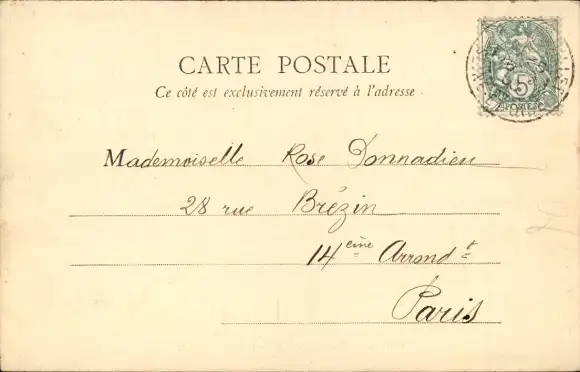 CARTE POSTALE
Ce côté est exclusivement réservé à l'adresse
5
POSTES
Mademoiselle Rose Donnadieu
28 rue Brézin
14 ème Arrondt
Paris